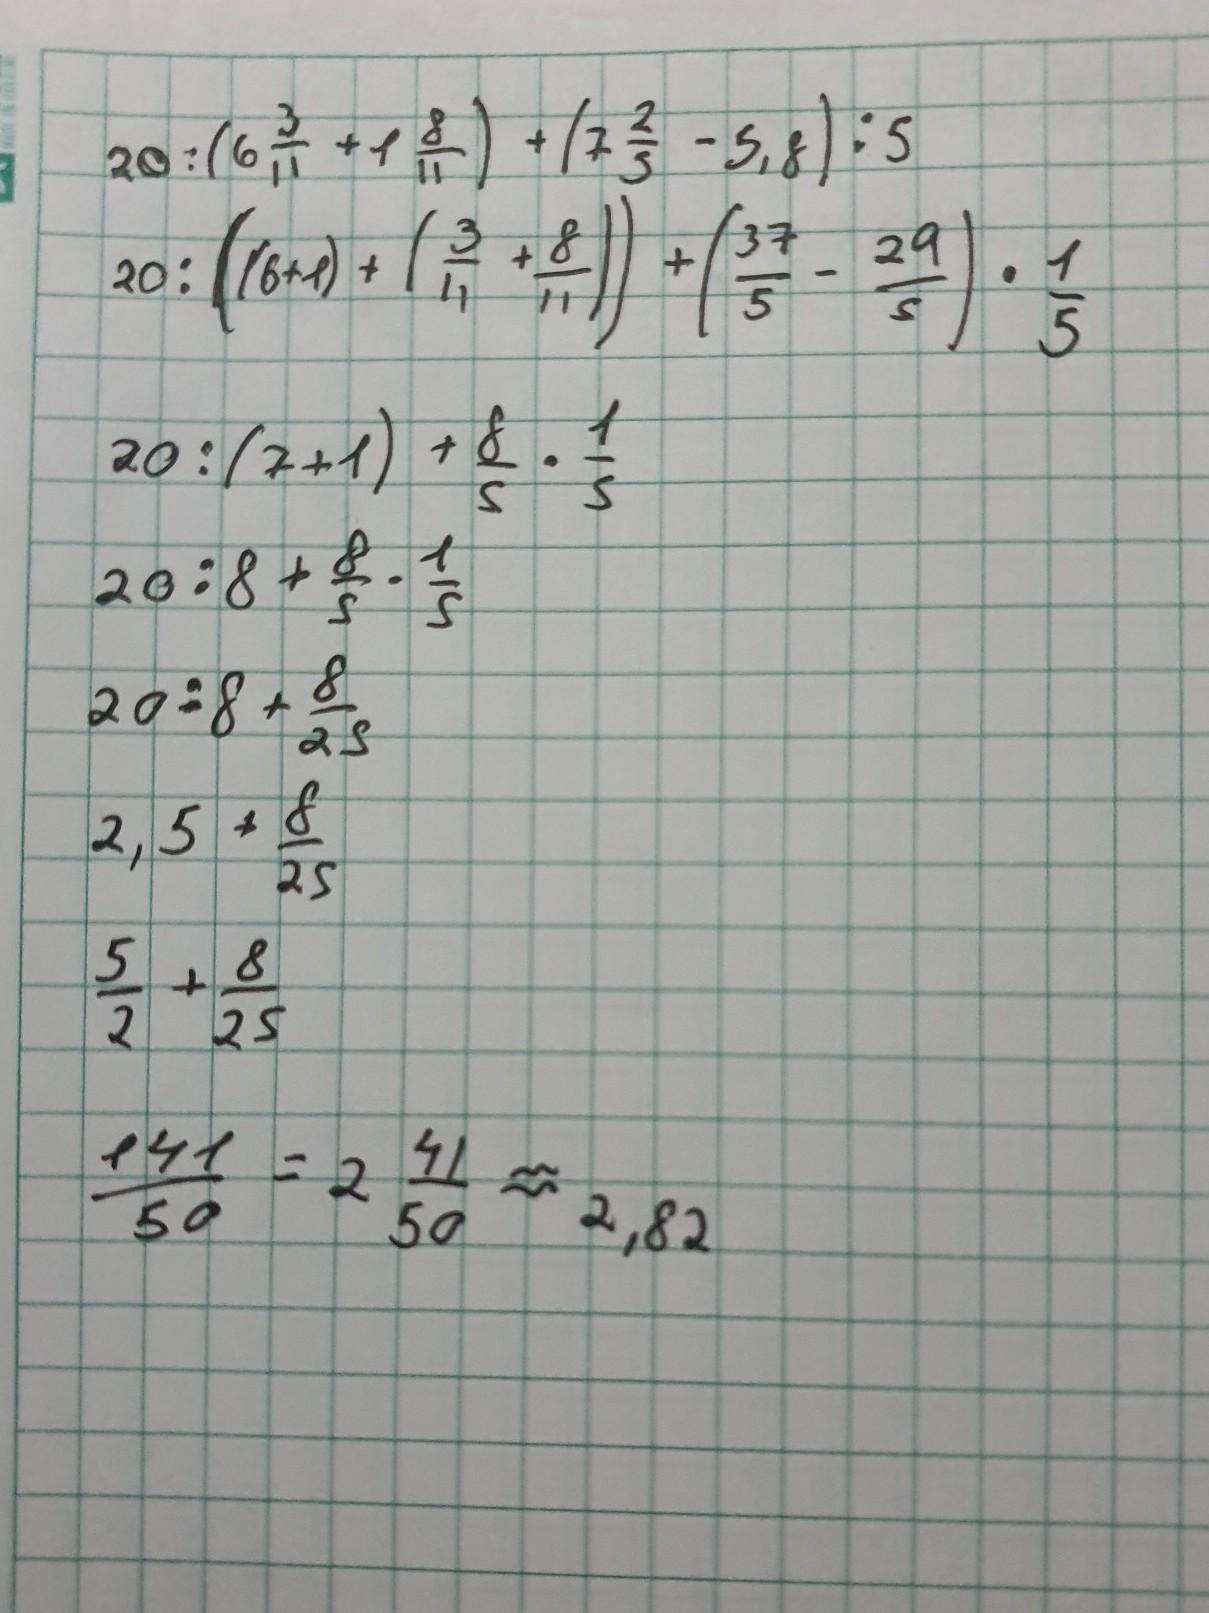 20:(6 3/11 + 1 8/11) + (7 2/5 - 5,8) : 5
20:((6+1) + (3/11 + 8/11)) + (37/5 - 29/5) · 1/5
20:(7+1) + 8/5 · 1/5
20:8 + 8/5 · 1/5
20:8 + 8/25
2,5 + 8/25
5/2 + 8/25
141/50 = 2 41/50 ≈ 2,82